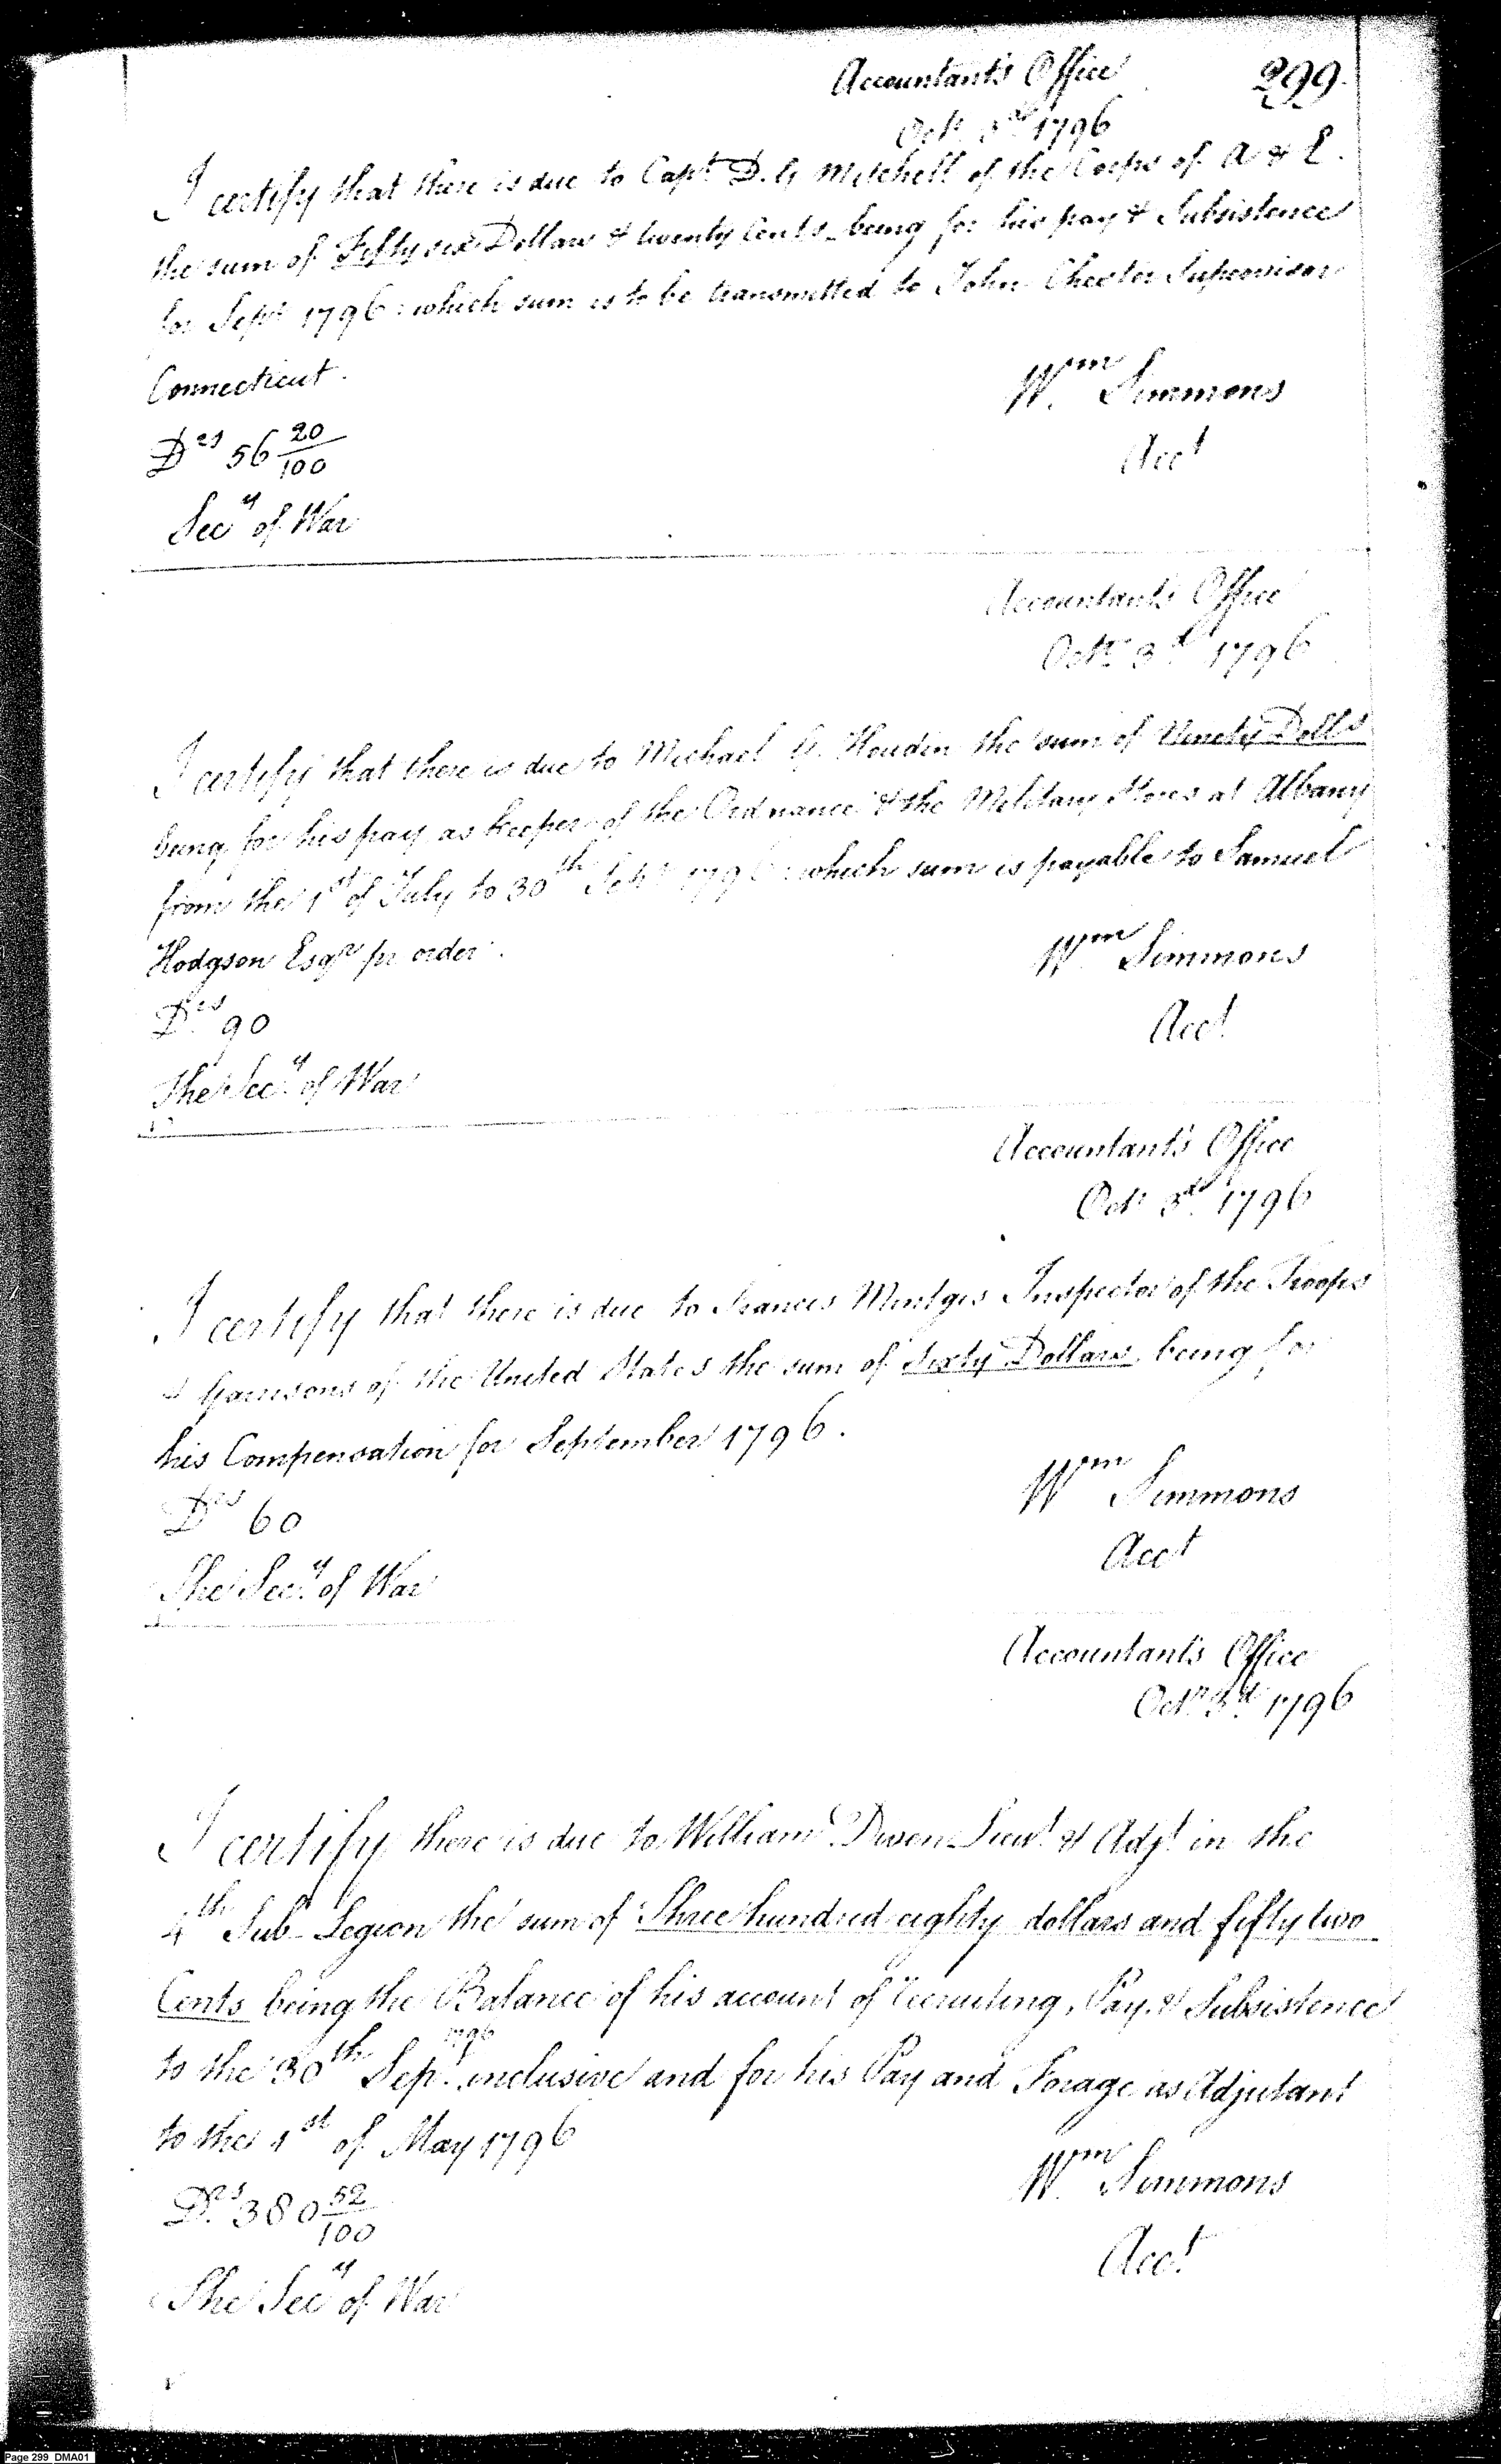 Accountant's Office 299.
Octr 3d 1796
I certify that there is due to Capt D. G Mitchell of the Corps of A & E.
the sum of Fifty six Dollars & twenty Cents being for his pay & Subsistence
for Sept 1796: which sum is to be transmitted to John Chester Supervisor
Connecticut.
Wm Simmons
Drs 56 20/100
Acct
Secy of War
Accountant's Office
Octr 3d 1796
I certify that there is due to Michael G. Houdin the sum of Ninety Dolls
being for his pay as keeper of the Ordnance & the Military Stores at Albany
from the 1st of July to 30th Sept 1796: which sum is payable to Samuel
Hodgson Esqr pr order.
Wm Simmons
Drs 90
Acct
The Secy of War
Accountant's Office
Octr 3d 1796
I certify that there is due to Francis Mentges Inspector of the Troops
& Garrisons of the United States the sum of Sixty Dollars being for
his Compensation for September 1796.
Wm Simmons
Drs 60
Acct
The Secy of War
Accountant's Office
Octr 3d 1796
I certify there is due to William Diven Lieut & Adjt in the
4th Sub Legion the sum of Three hundred eighty dollars and fifty two
Cents being the Balance of his account of recruiting, Pay & Subsistence
1796
to the 30th Sept inclusive and for his Pay and Forage as Adjutant
to the 1st of May 1796
Wm Simmons
Drs 380 52/100
Acct
The Secy of War
Page 299 DMA01